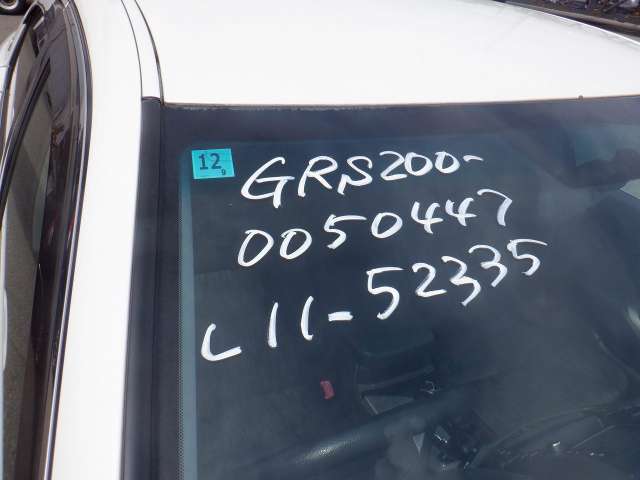 12
9
GRS200-
0050447
L11-52335